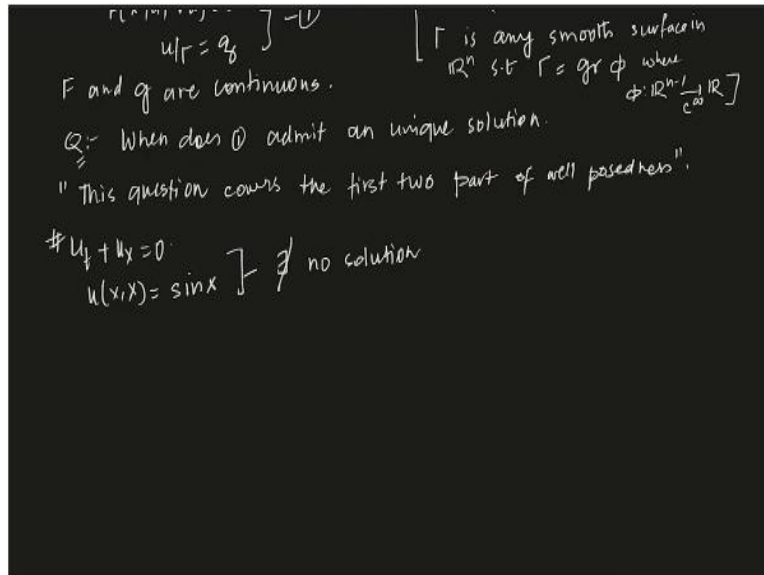 u/Γ = g ] -①
[ Γ is any smooth surface in
ℝⁿ s.t Γ = gr φ where
φ: ℝⁿ⁻¹ → ℝ ]
C^∞
F and g are continuous.
Q:- When does ① admit an unique solution.
" This question covers the first two part of well posedness".
# u_t + u_x = 0
u(x,x) = sinx ] - ∄ no solution